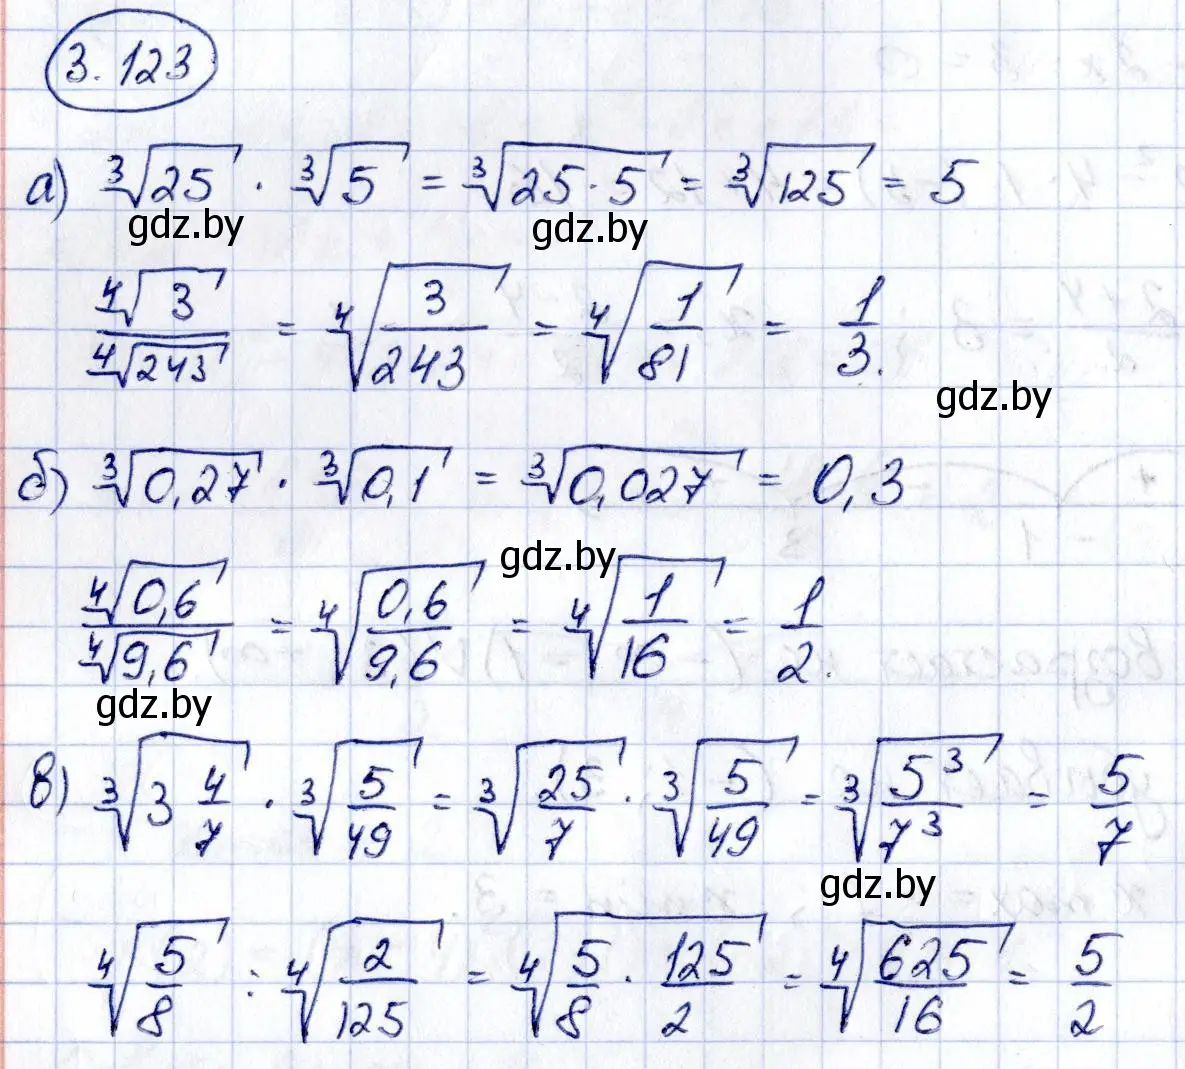 3.123
а) ∛25 · ∛5 = ∛(25·5) = ∛125 = 5
gdz.by gdz.by
∜3 / ∜243 = ∜(3/243) = ∜(1/81) = 1/3.
gdz.by
б) ∛0,27 · ∛0,1 = ∛0,027 = 0,3
gdz.by
∜0,6 / ∜9,6 = ∜(0,6/9,6) = ∜(1/16) = 1/2.
gdz.by
в) ∛(3 4/7) · ∛(5/49) = ∛(25/7) · ∛(5/49) = ∛(5³/7³) = 5/7
gdz.by
∜(5/8) ÷ ∜(2/125) = ∜(5/8 · 125/2) = ∜(625/16) = 5/2